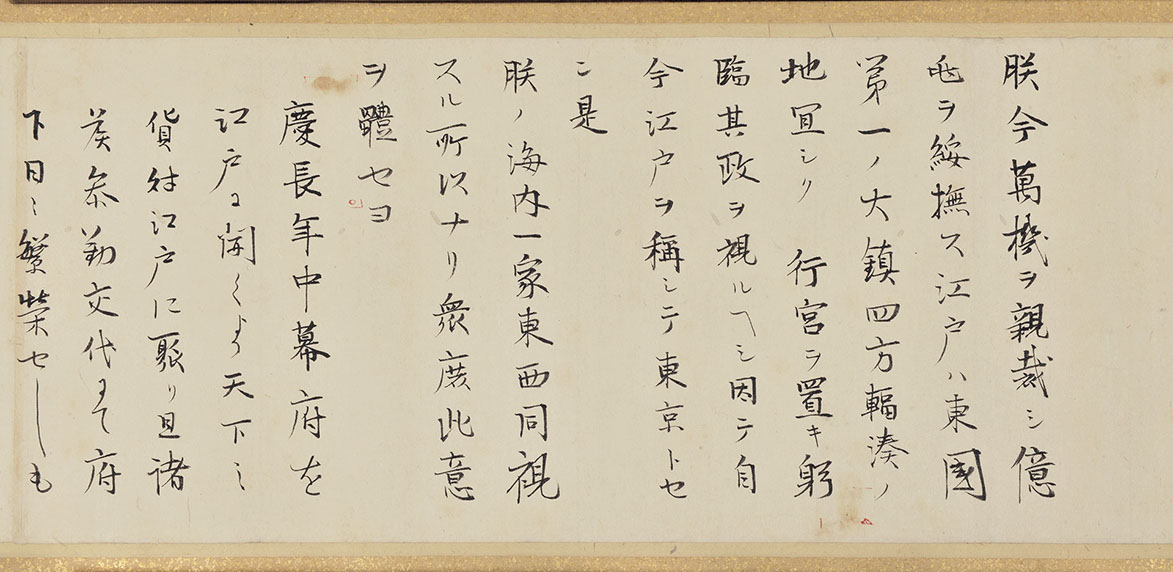 朕今萬機ヲ親裁シ億
兆ヲ綏撫ス江戸ハ東國
第一ノ大鎮四方輻湊ノ
地宜シク 行宮ヲ置キ躬
臨其政ヲ視ルヘシ因テ自
今江戸ヲ稱シテ東京トセ
ン是
朕ノ海内一家東西同視
スル所以ナリ衆庶此意
ヲ體セヨ
慶長年中幕府を
江戸に開くより天下の
貨財江戸に聚り且諸
侯参勤交代にて府
下日々繁榮せしも